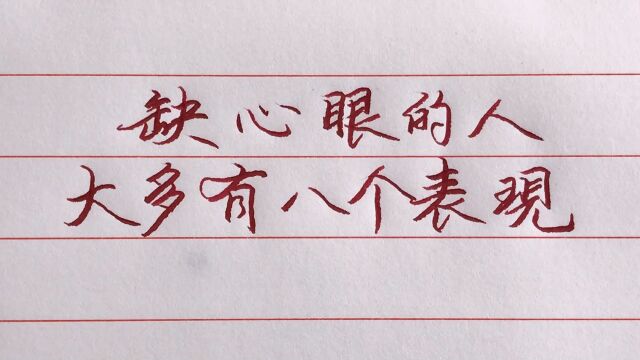 缺心眼的人
大多有八个表現